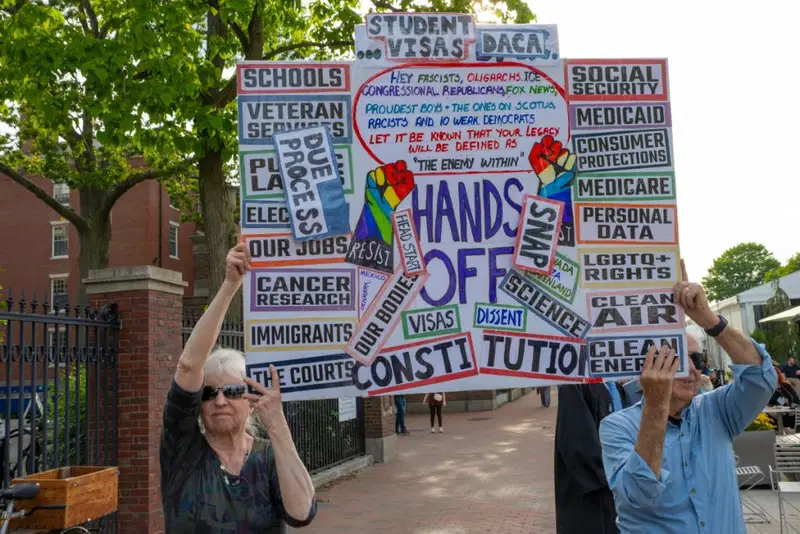 STUDENT
...VISAS
DACA...
SCHOOLS
VETERAN
SERVICES
DUE
PROCESS
OUR JOBS
CANCER
RESEARCH
IMMIGRANTS
THE COURTS
HEY FASCISTS, OLIGARCHS, ICE
CONGRESSIONAL REPUBLICANS, FOX NEWS,
PROUDEST BOYS + THE ONES ON SCOTUS,
RACISTS AND 10 WEAK DEMOCRATS
LET IT BE KNOWN THAT YOUR LEGACY
WILL BE DEFINED AS
"THE ENEMY WITHIN"
HANDS
OFF
RESIST
HEAD START
MEXICO
OUR BODIES
SNAP
SCIENCE
VISAS
DISSENT
CONSTITUTION
SOCIAL
SECURITY
MEDICAID
CONSUMER
PROTECTIONS
MEDICARE
PERSONAL
DATA
LGBTQ+
RIGHTS
CLEAN
AIR
CLEAN
ENERGY